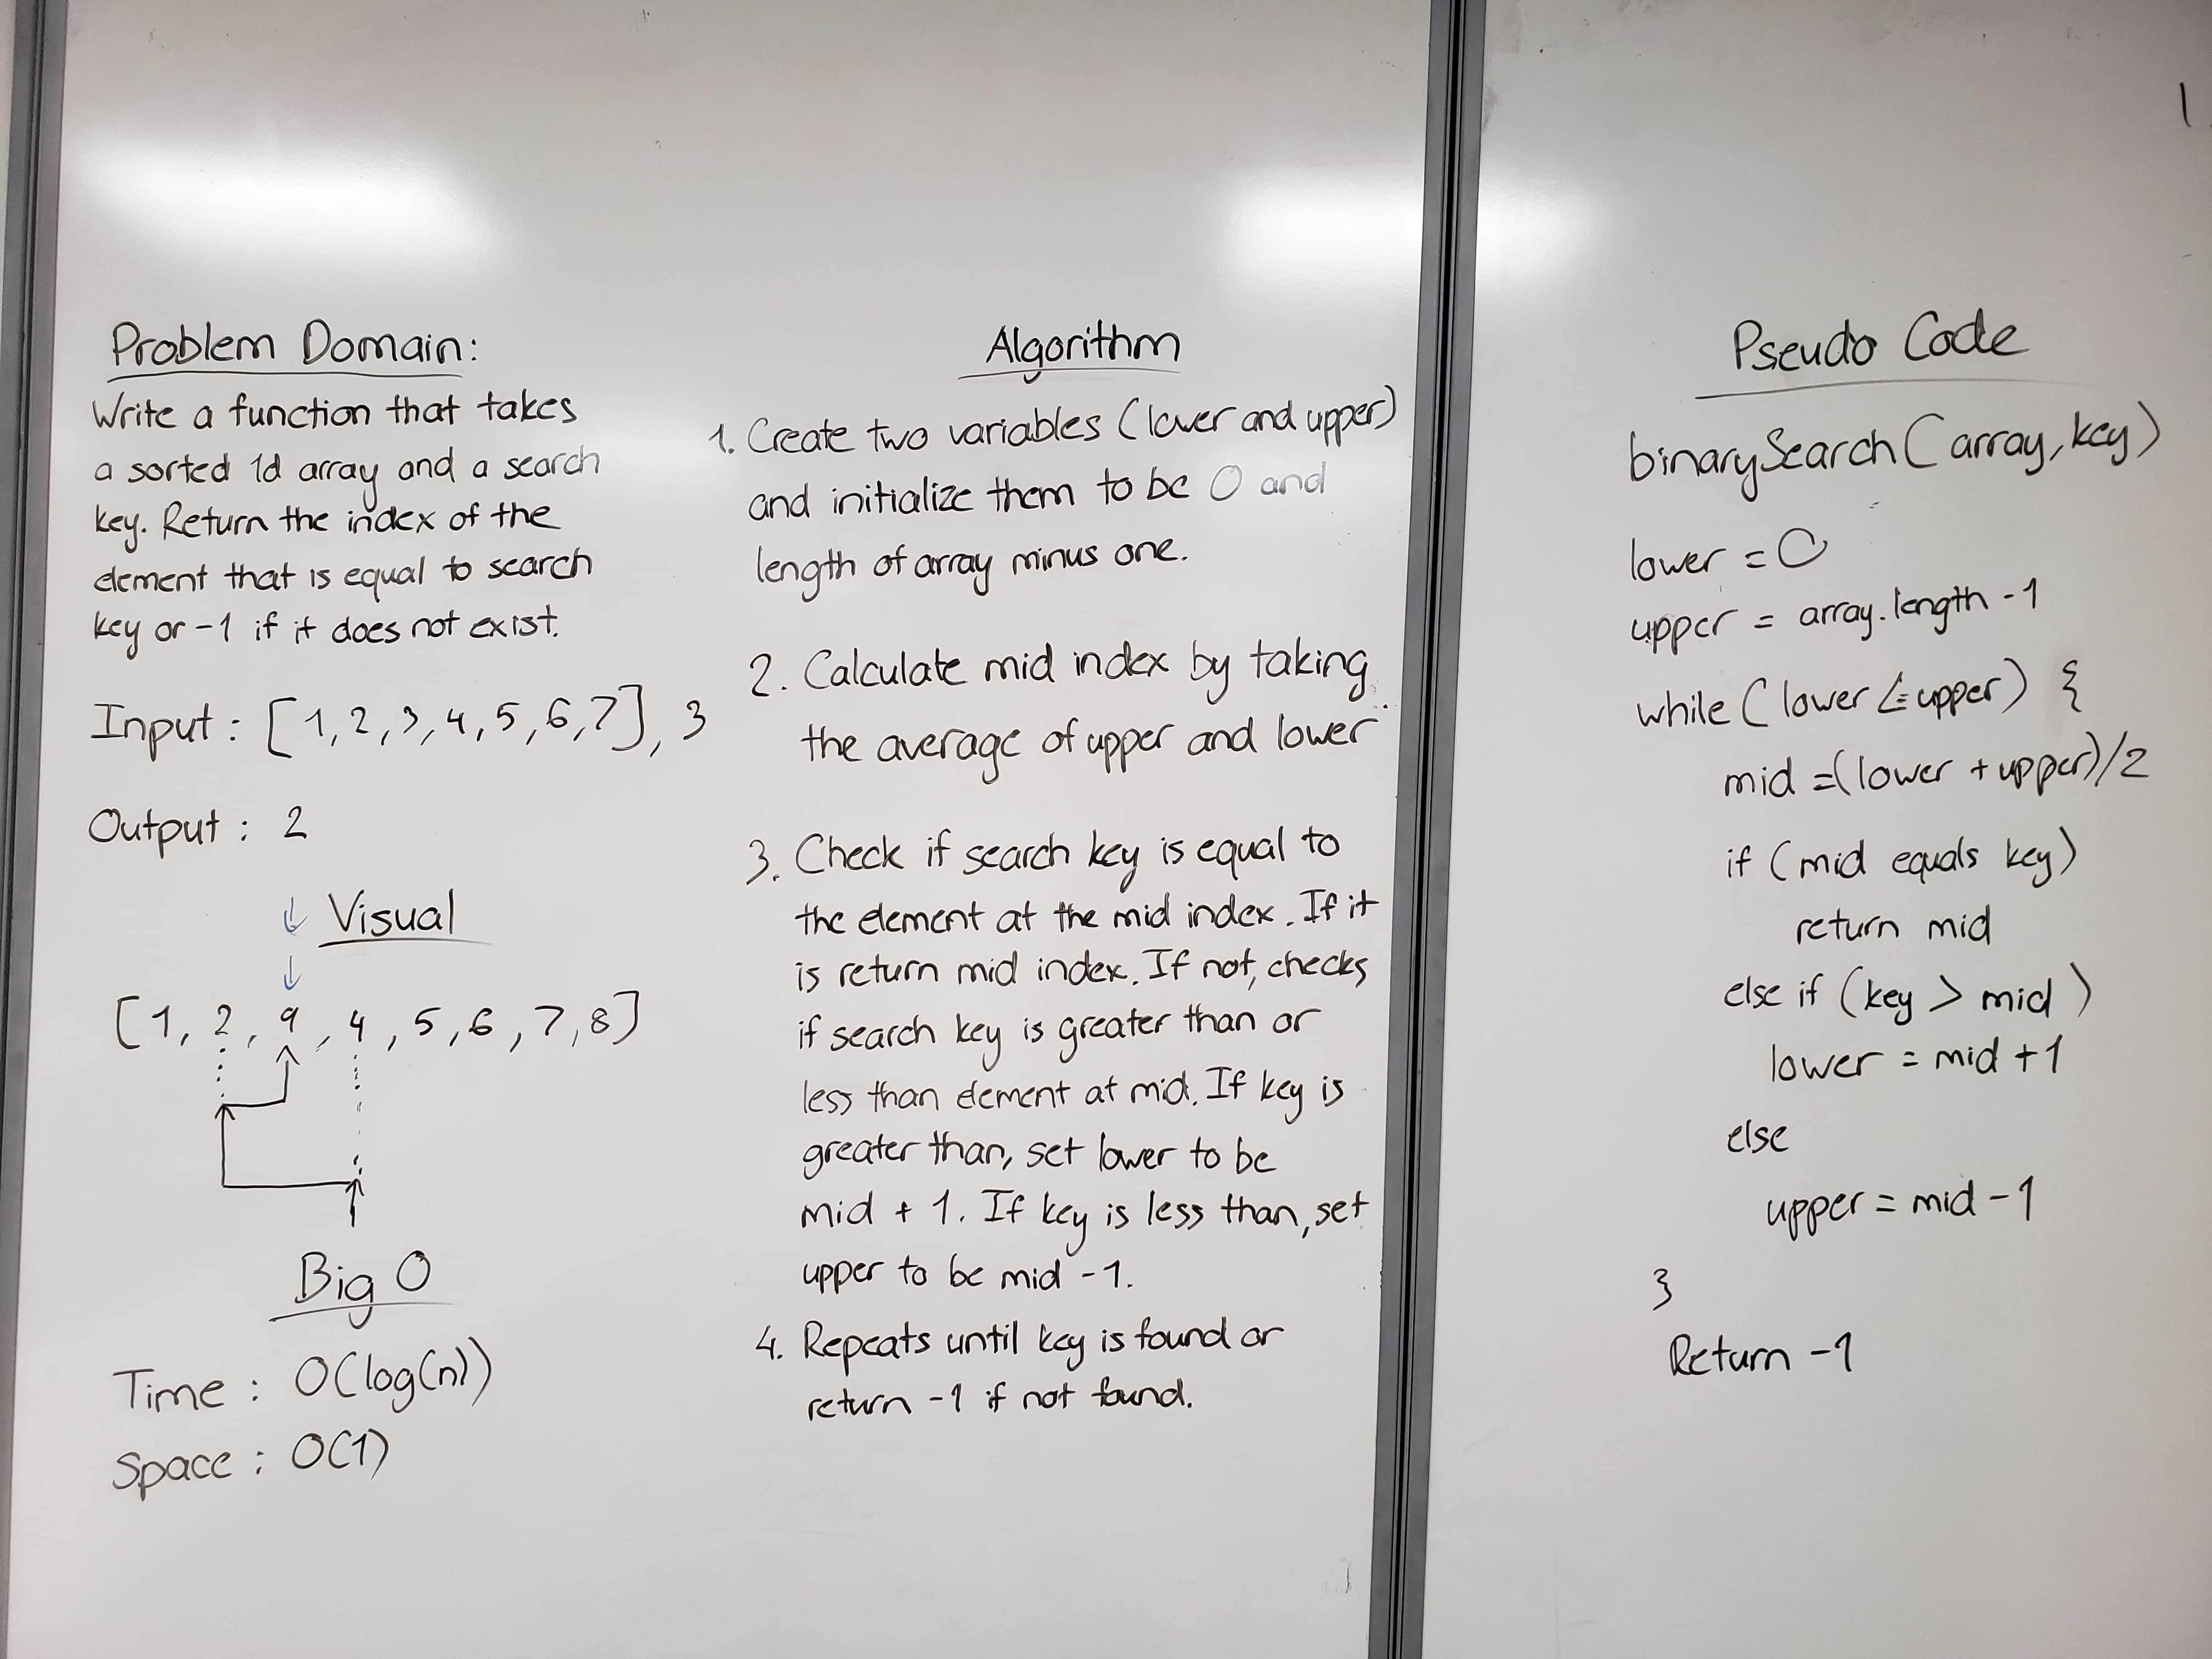 Problem Domain:
Write a function that takes
a sorted 1d array and a search
key. Return the index of the
element that is equal to search
key or -1 if it does not exist.
Input : [1,2,3,4,5,6,7], 3
Output : 2
Visual
[1, 2, 9, 4, 5, 6, 7, 8]
Big O
Time : O(log(n))
Space : O(1)
Algorithm
1. Create two variables (lower and upper)
and initialize them to be 0 and
length of array minus one.
2. Calculate mid index by taking
the average of upper and lower
3. Check if search key is equal to
the element at the mid index. If it
is return mid index. If not, checks
if search key is greater than or
less than element at mid. If key is
greater than, set lower to be
mid + 1. If key is less than, set
upper to be mid -1.
4. Repeats until key is found or
return -1 if not found.
Pseudo Code
binarySearch(array, key)
lower = 0
upper = array.length -1
while (lower <= upper) {
mid = (lower + upper)/2
if (mid equals key)
return mid
else if (key > mid)
lower = mid +1
else
upper = mid -1
}
Return -1